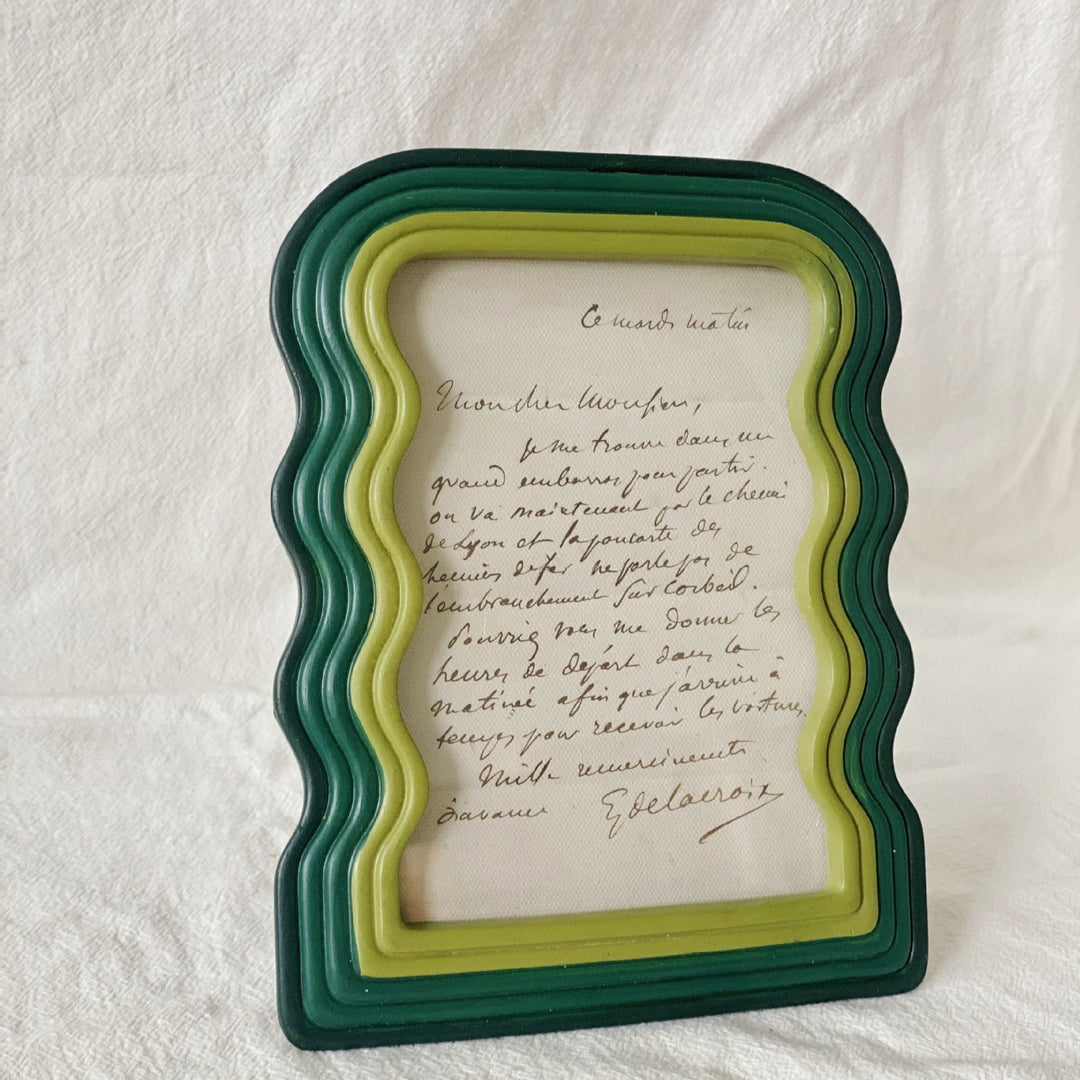 Ce mardi matin
Mon cher Monsieur,
Je me trouve dans un
grand embarras pour partir.
on va maintenant par le chemin
de Lyon et la pancarte des
chemins de fer ne parle pas de
l'embranchement sur Corbeil.
Pourriez vous me donner les
heures de départ dans la
matinée afin que j'arrive à
temps pour recevoir les voitures.
Mille remerciements
d'avance EugDelacroix